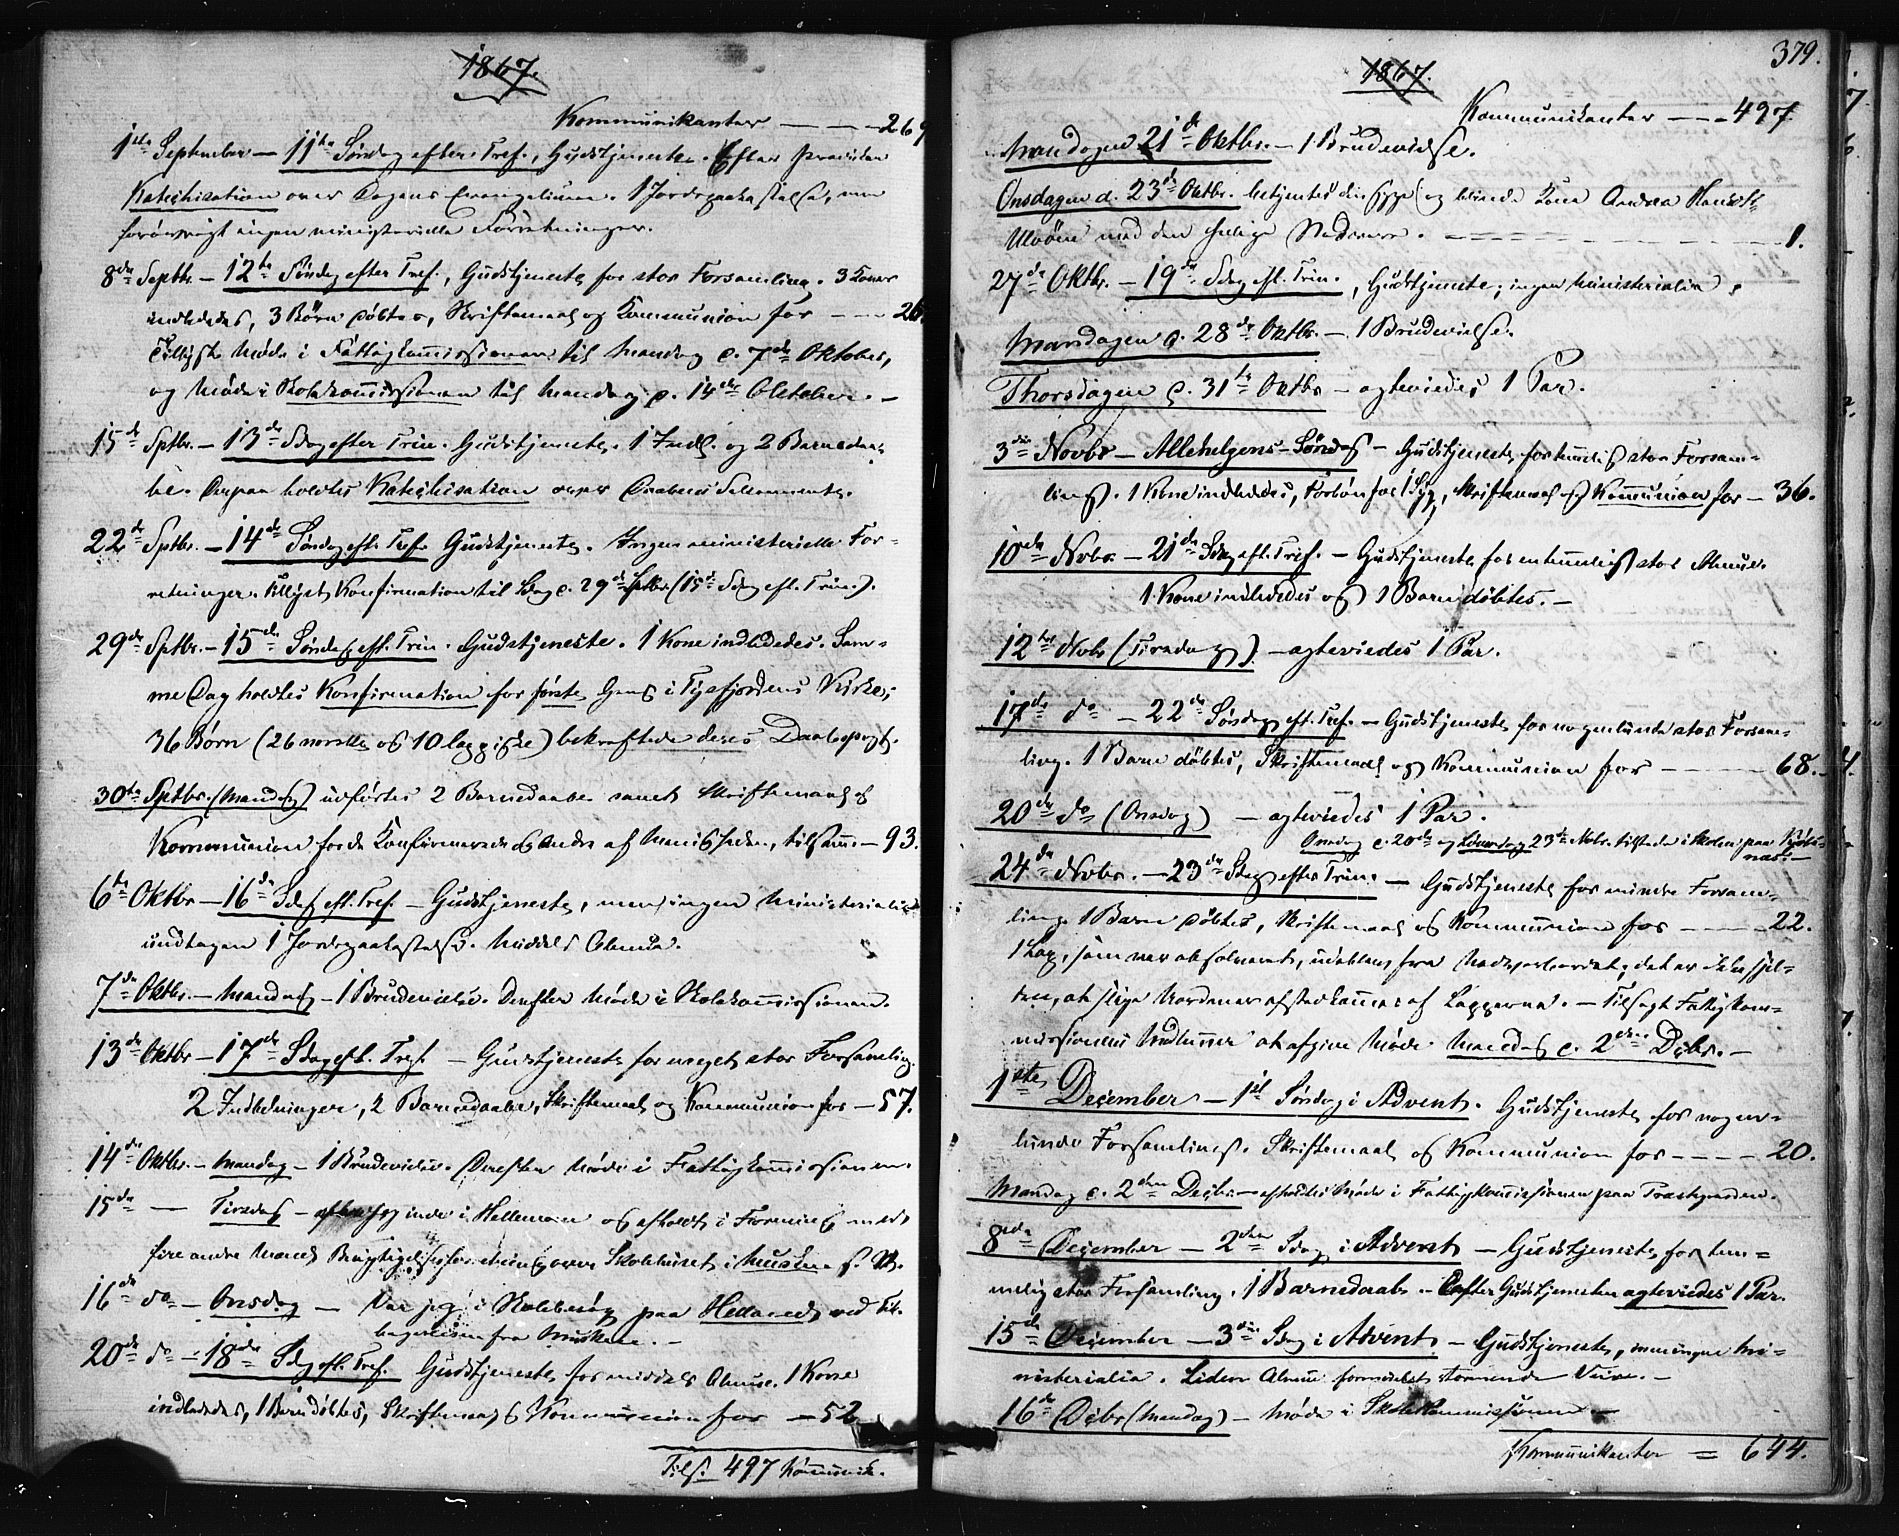 1867.
Kommunikanter — — — 269
1ste September — 11te Søndag efter Tref., Gudstjeneste. Efter Præeidken
Katechisation over Dagens Evangelium. 1 Jordpaakastelse, men
forøvrigt ingen ministerielle Forretninger.
8de Septbr. — 12te Søndag efter Tref., Gudstjeneste for stor Forsamling. 3 Koner
indledes, 3 Børn døbtes, Skriftemaal og Kommunion for — — 26
Tillyst Møde i Fattigkommissionen til Mandag d. 7de Oktober,
og Møde i Skolekommissionen til Mandag d. 14de Oktober. —
15de Sptbr. — 13de Sdag efter Trin. Gudstjeneste. 1 Indl. og 2 Barnedaa-
be. Derpaa holdtes Katechisation over Daabens Sakramente.
22de Sptbr. — 14de Søndag eft. Tref. Gudstjeneste. Ingen ministerielle For-
retninger. Tillyst Konfirmation til Sdag d. 29de Sptbr. (15de Sdag eft. Trin.).
29de Sptbr. — 15de Søndag eft. Trin. Gudstjeneste. 1 Kone indledes. Sam-
me Dag holdtes Konfirmation for første Gang i Tysfjordens Kirke;
36 Børn (26 norske og 10 lappiske) bekræftede deres Daabspagt.
30te Sptbr. (Mandag) udførtes 2 Barnedaabe samt Skriftemaal og
Kommunion for de Konfirmerede og Andre af Menigheden, tilsam. — 93.
6te Oktbr — 16de Sdag eft. Tref. — Gudstjeneste, men ingen Ministerialia
undtagen 1 Jordpaakastelse. Middels Almue.
7de Oktbr. — Mandag — 1 Brudevielse. Derefter Møde i Skolekommissionen.
13de Oktbr — 17de Sdag eft. Tref. — Gudstjeneste for meget stor Forsamling.
2 Indledninger, 2 Barnedaabe, Skriftemaal og Kommunion for — 57.
14de Oktbr. — Mandag — 1 Brudevielse. Derefter Møde i Fattigkommissionen.
15de — Tirsdag — inde i Hellemoen og afholdt i Forening med
fire andre Mænd Besigtigelsesforretning over Skolehuset i Musken
16de do — Onsdag — Var jeg i Skolebesøg paa Hellarnes ved Til-
bagereisen fra Musken. —
20de do — 18de Sdag eft. Tref. Gudstjeneste for middels Almue. 1 Kone
indledes, 1 Barn døbtes, Skriftemaal og Kommunion for — 52
Tils. 497 Kommunik.
379.
1867.
Kommunikanter — — 497
Mandagen 21de Oktbr. — 1 Brudevielse.
Onsdagen d. 23de Oktbr. betjentes den syge og blinde Kone Andrea Hansdt.
Ulvøen med den hellige Nadvere. — — — 1.
27de Oktbr. — 19de Sdag eft. Trin., Gudstjeneste; ingen Ministerialia.
Mandagen d. 28de Oktbr. — 1 Brudevielse.
Thorsdagen d. 31te Oktbr — ægteviedes 1 Par.
3die Novbr — Allehelgens-Søndag — Gudstjeneste for temmelig stor Forsam-
ling. 1 Kone indledes, Forbøn for 1 Syg, Skriftemaal og Kommunion for — 36.
10de Novbr. — 21de Sdag eft. Tref. — Gudstjeneste for en temmelig stor Almue.
1 Kone indledes og 1 Barn døbtes. —
12te Novbr (Tirsdag) — ægteviedes 1 Par.
17de do — 22de Søndag eft. Tref. — Gudstjeneste for nogenlunde stor Forsam-
ling. 1 Barn døbtes, Skriftemaal og Kommunion for — — — 68.
20de do (Onsdag) — ægteviedes 1 Par.
Onsdag d. 20de og Løverdag 23de Novbr. tilstede i Skolen paa Kjøbs-
næs. —
24de Novbr. — 23de Sdag efter Trin. — Gudstjeneste for mindre Forsam-
ling. 1 Barn døbtes, Skriftemaal og Kommunion for — — — 22.
1 Lap, som var absolveret, udeblev fra Nadverbordet; det er ikke sjel-
dent, at slige Uordener afstedkommes af Lapperne. — Tilsagt Fattigkom-
missionens Medlemmer at afgive Møde Mandag d. 2den Dcbr. —
1ste December — 1ste Søndag i Advent. Gudstjeneste for nogen-
lunde Forsamling. Skriftemaal og Kommunion for — — — 20.
Mandag d. 2den Decbr. — afholdtes Møde i Fattigkommissionen paa Præstegaarden.
8de December — 2den Sdag i Advent — Gudstjeneste for tem-
melig stor Forsamling. 1 Barnedaab. — Efter Gudstjenesten ægteviedes 1 Par.
15de December — 3die Sdag i Advent — Gudstjeneste, men ingen Mi-
nisterialia. Liden Almue formedelst stormende Veir. —
16de Dcbr (Mandag) — Møde i Skolekommissionen —
Kommunikanter = 644.